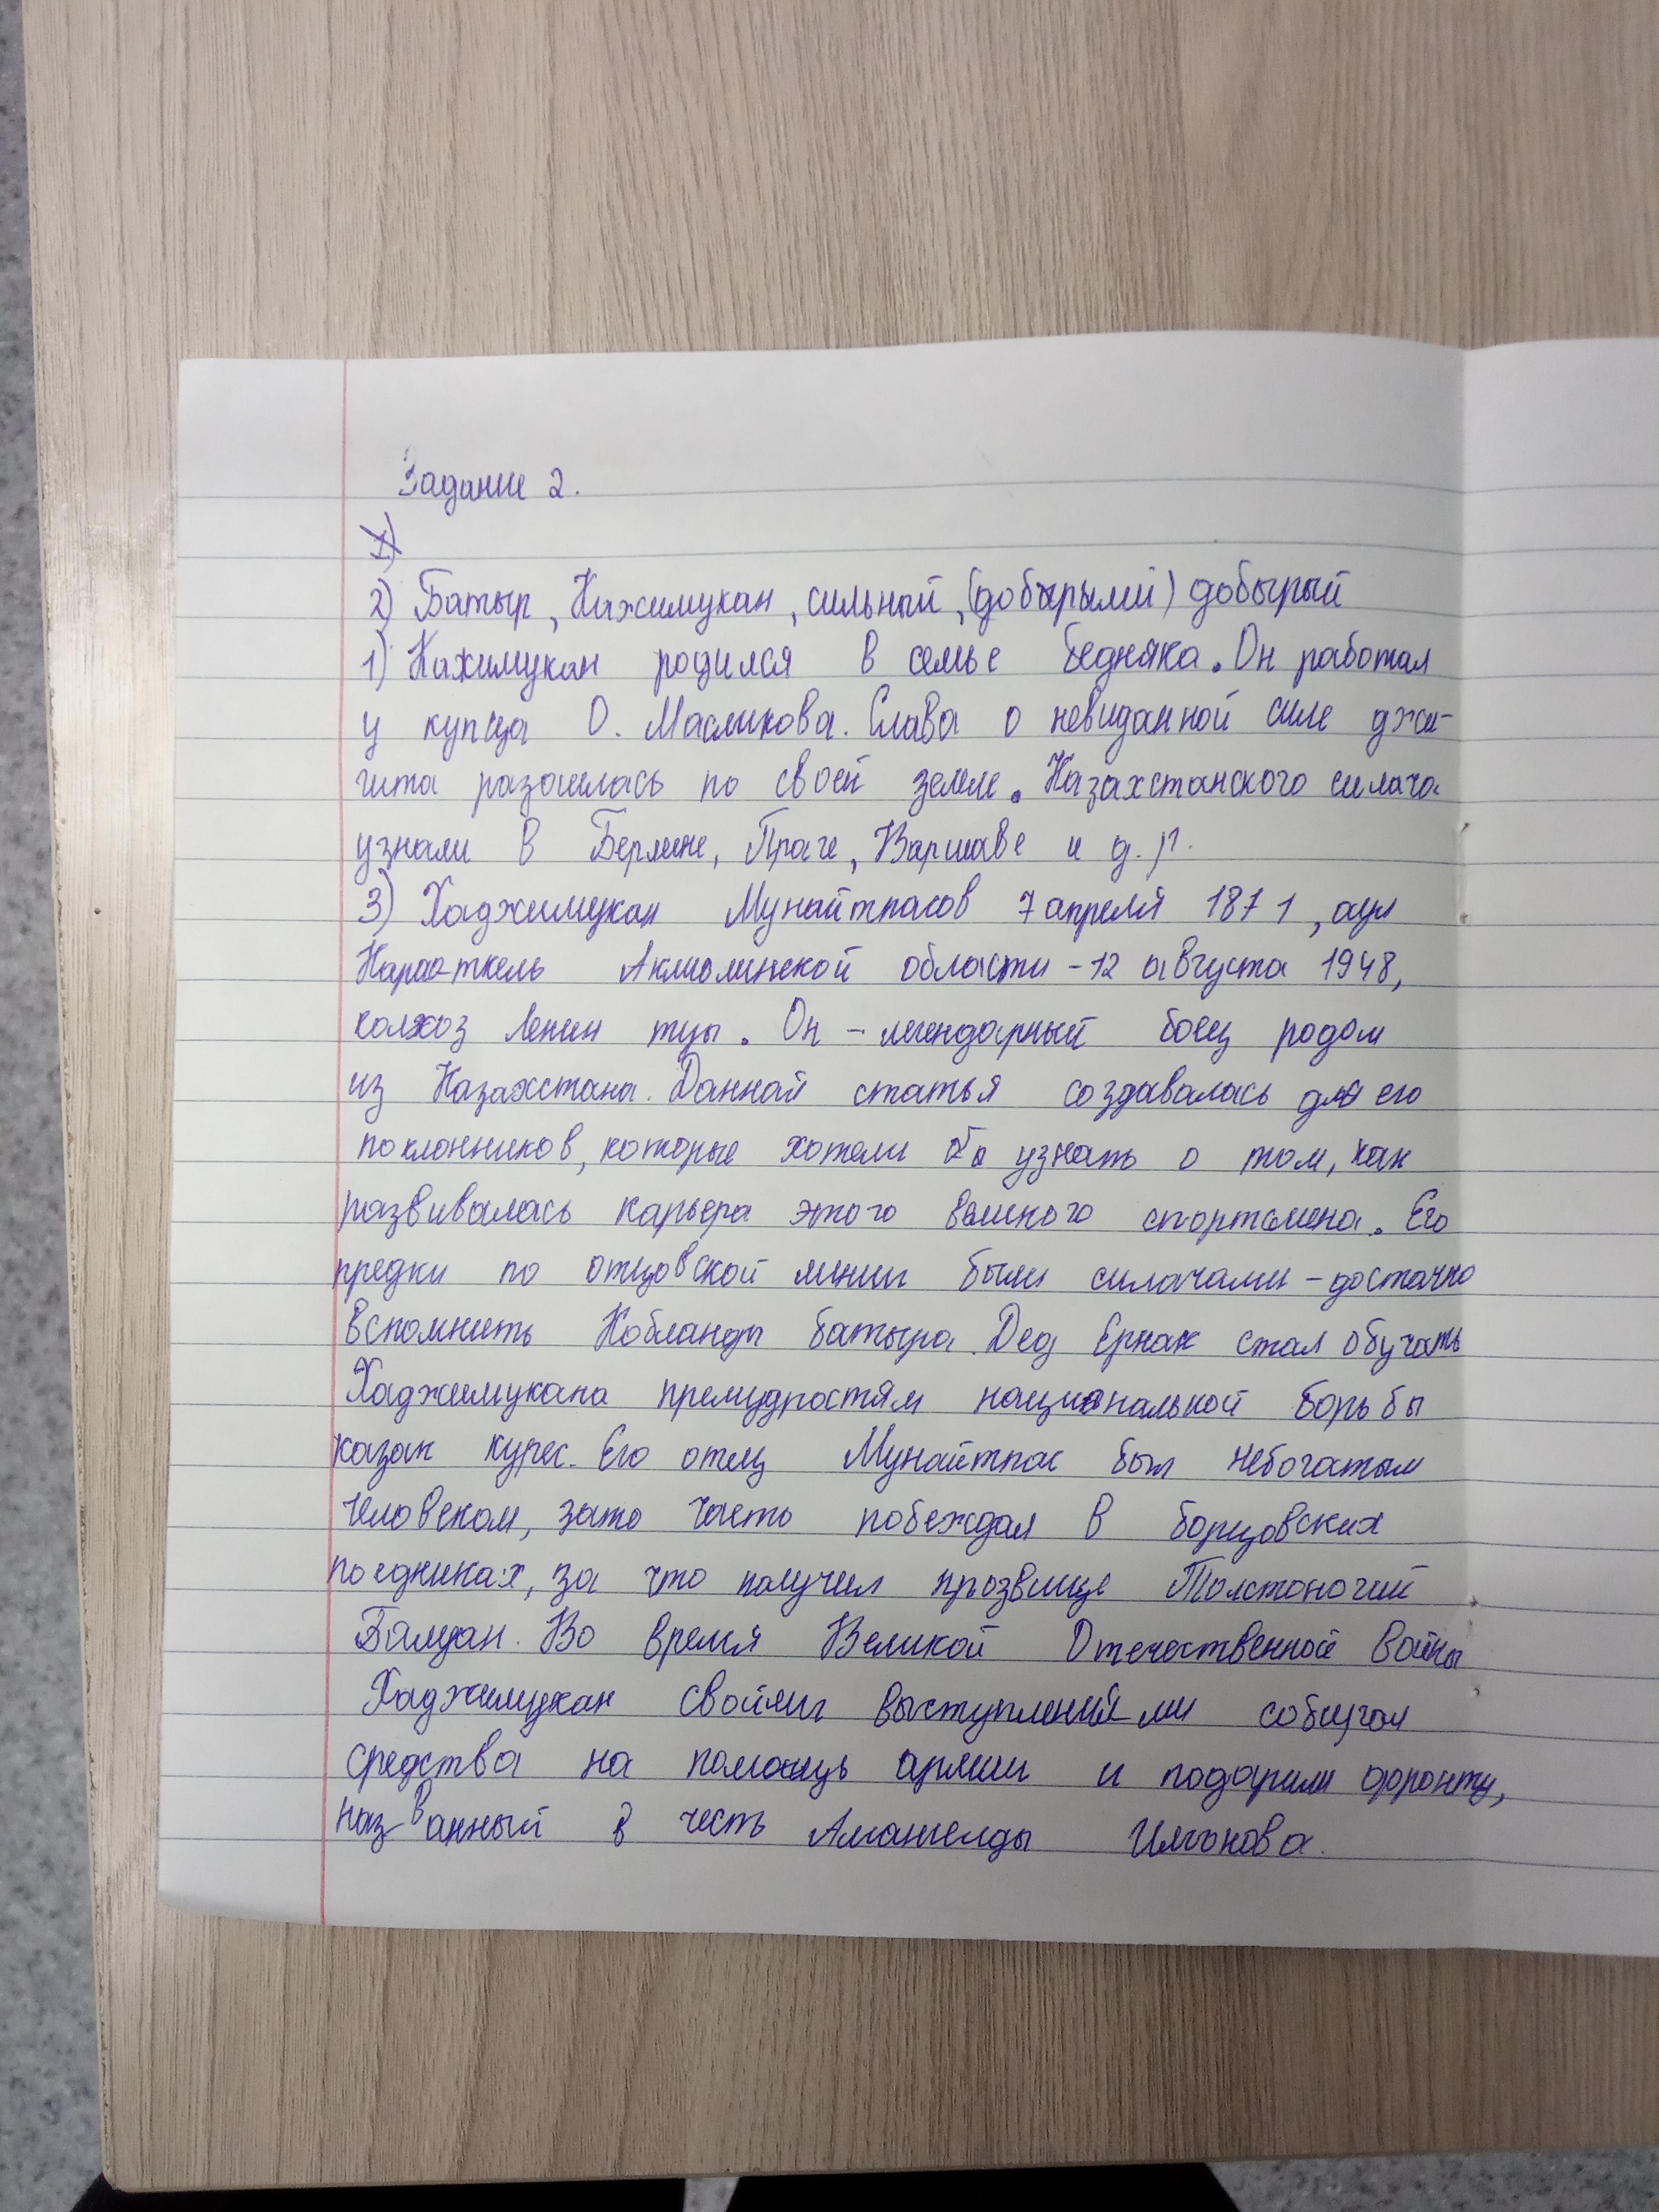 Задание 2.
1)
2) Батыр, Кажимукан, сильный, (добырымй) добырый
1) Кажимукан родился в семье бедняка. Он работал
у купца О. Масликова. Слава о невиданной силе джи-
гита разошлась по своей земле. Казахстанского силача
узнали в Берлине, Праге, Варшаве и д.р.
3) Хаджимукан Мунайтпасов 7 апреля 1871, аул
Караоткель Акмолинской области - 12 августа 1948,
колхоз Ленин туы. Он - легендарный боец родом
из Казахстана. Данная статья создавалась для его
поклонников, которые хотели бы узнать о том, как
развивалась карьера этого великого спортсмена. Его
предки по отцовской линии были силачами - достачно
вспомнить Кобланды батыра. Дед Ернак стал обучать
Хаджимукана премудростям национальной борьбы
казак курес. Его отец Мунайтпас был небогатым
человеком, зато часто побеждал в борцовских
поединках, за что получил прозвище Толстоногий
Балуан. Во время Великой Отечественной войны
Хаджимукан своими выступлениями собирал
средства на помощь армии и подарили фронту,
названный в честь Амангелды Иманова.